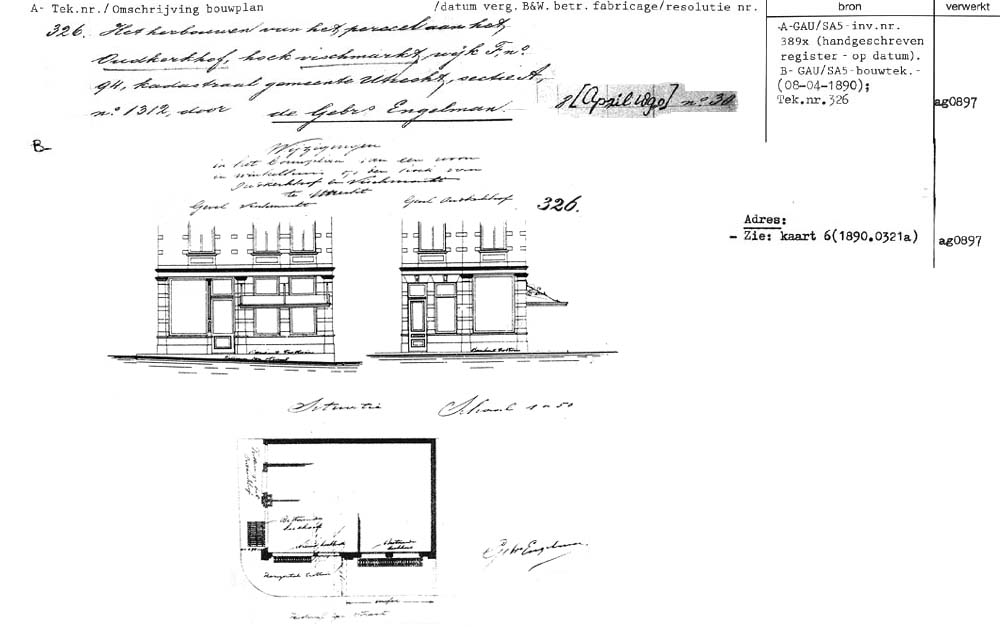 A- Tek.nr./Omschrijving bouwplan /datum verg. B&W. betr. fabricage/resolutie nr. bron verwerkt
326. Het herbouwen van het perceel aan het,
Oudkerkhof, hoek vischmarkt, wijk F, nº
94, kadastraal gemeente Utrecht, sectie A,
nº 1312, door de Gebrs Engelman.
8 [April 1890] nº 30
A-GAU/SA5-inv.nr.
389x (handgeschreven
register - op datum).
B- GAU/SA5-bouwtek.-
(08-04-1890);
Tek.nr.326
ag0897
B-
Wijzigingen
in het bouwplan van een woon
en winkelhuis op den hoek van
Oudkerkhof en Vischmarkt
te Utrecht
Gevel Vischmarkt
Gevel Oudkerkhof
326.
Adres:
- Zie: kaart 6(1890.0321a)
ag0897
Situatie
Schaal 1 a 50
Bestaande
Gebr Engelman